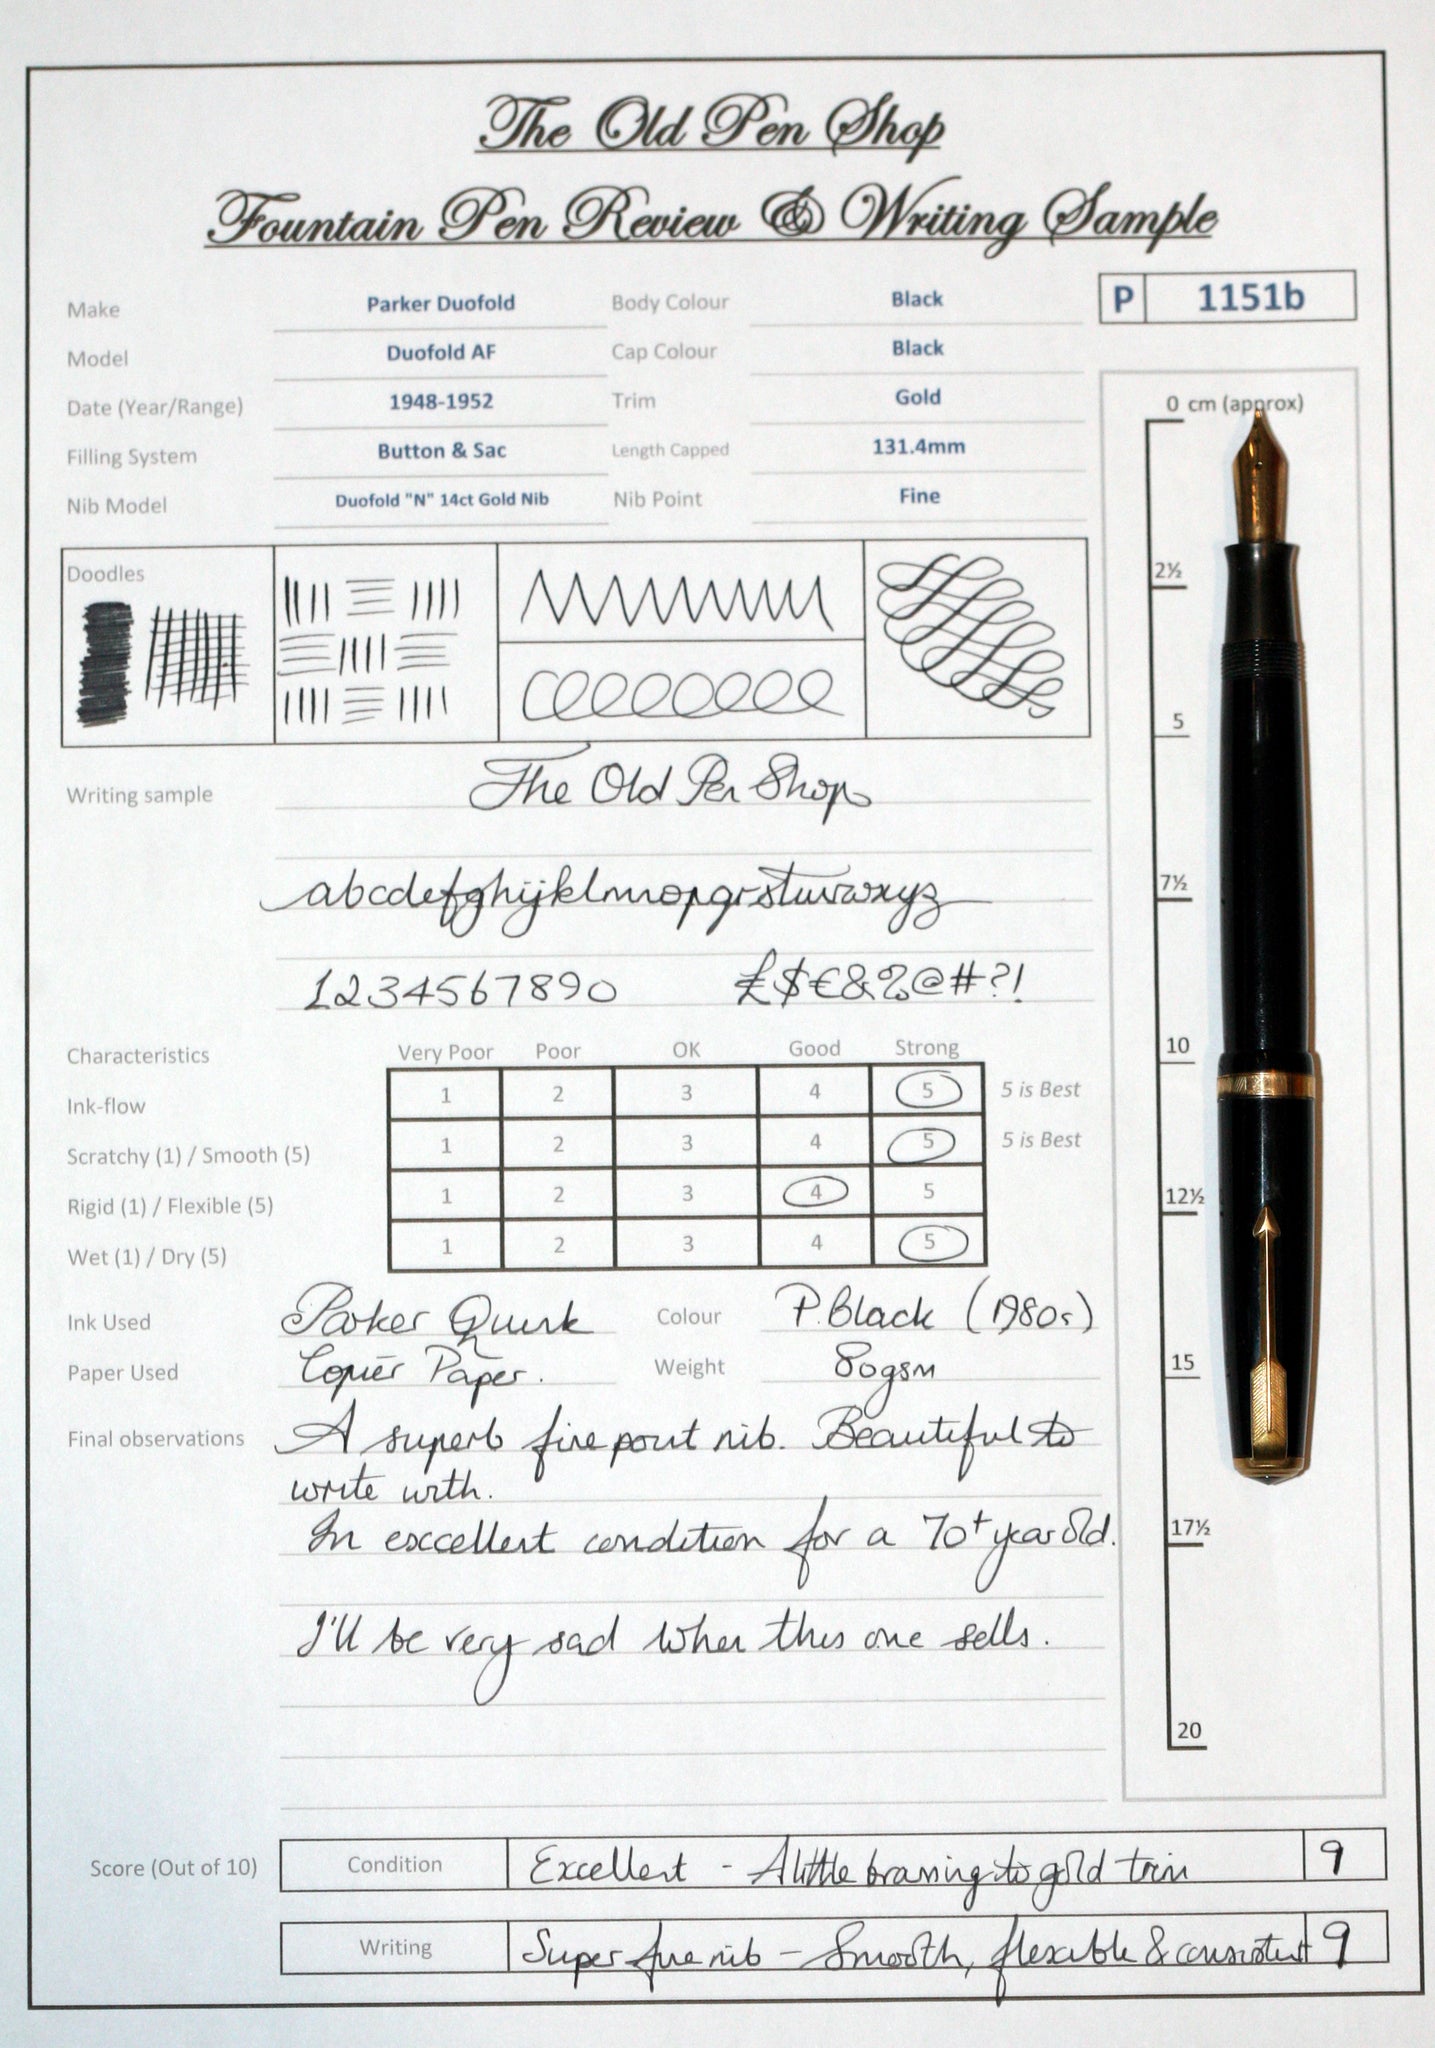 The Old Pen Shop
Fountain Pen Review & Writing Sample
Make Parker Duofold Body Colour Black P 1151b
Model Duofold AF Cap Colour Black
Date (Year/Range) 1948-1952 Trim Gold
Filling System Button & Sac Length Capped 131.4mm
Nib Model Duofold "N" 14ct Gold Nib Nib Point Fine
0 cm (approx)
2½
5
7½
10
12½
15
17½
20
Doodles
Writing sample The Old Pen Shop
abcdefghijklmnopqrstuvwxyz
1234567890 £$€&%@#?!
Characteristics Very Poor Poor OK Good Strong
Ink-flow 1 2 3 4 5 5 is Best
Scratchy (1) / Smooth (5) 1 2 3 4 5 5 is Best
Rigid (1) / Flexible (5) 1 2 3 4 5
Wet (1) / Dry (5) 1 2 3 4 5
Ink Used Parker Quink Colour P. Black (1980s)
Paper Used Copier Paper. Weight 80gsm
Final observations A superb fine point nib. Beautiful to
write with.
In excellent condition for a 70+ year old.
I'll be very sad when this one sells.
Score (Out of 10) Condition Excellent - A little brassing to gold trim 9
Writing Super fine nib - Smooth, flexible & consistent 9